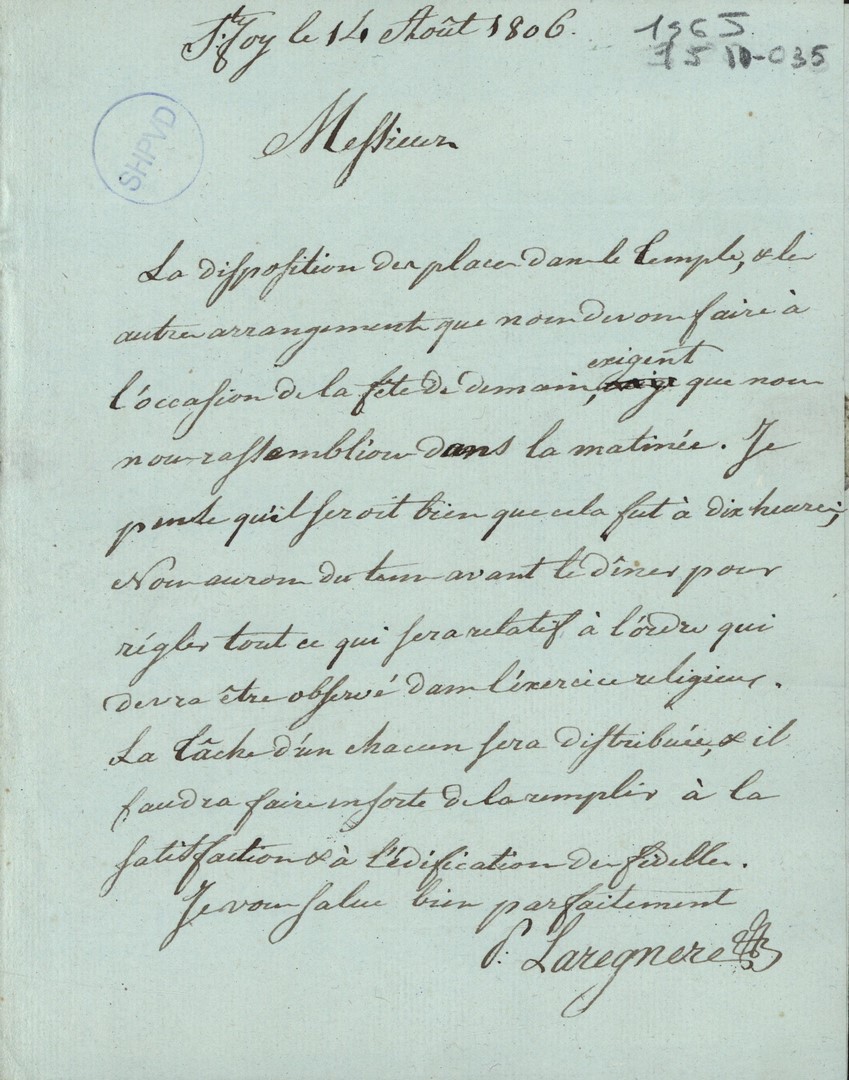 Ste Foy le 14 Août 1806.
1965
15 II-035
SHPVD
Messieurs
La disposition des places dans le temple, & les
autres arrangements que nous devons faire à
l'occasion de la fête de demain, exigent que nous
nous rassemblions dans la matinée. Je
pense qu'il seroit bien que cela fut à dix heures;
Nous aurons du tems avant le dîner pour
régler tout ce qui sera relatif à l'ordre qui
devra être observé dans l'éxercice religieux.
La tâche d'un chacun sera distribuée, & il
faudra faire ensorte de la remplir à la
satisfaction & à l'édification des fidelles.
Je vous salue bien parfaitement
P. Laregnere